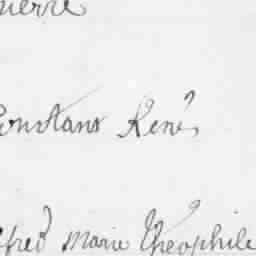 Pierre
Constans René
Alfred Marie Théophile